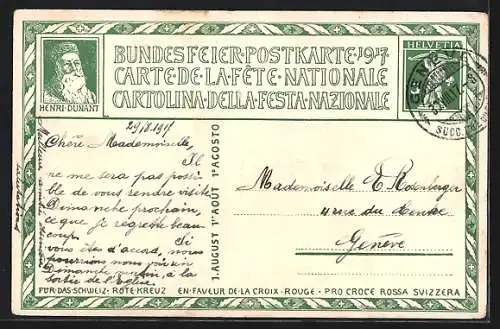 BUNDESFEIER-POSTKARTE·1917
CARTE·DE·LA·FÊTE·NATIONALE
CARTOLINA·DELLA·FESTA·NAZIONALE
HENRI·DUNANT
HELVETIA
SUCC.
29/8.191
Chère Mademoiselle,
Il
ne me sera pas possi-
ble de vous rendre visite
Dimanche prochain,
ce que je regrette beau-
coup. Si
vous êtes d'accord, nous
pourrions nous voir un
Dimanche matin, à la
sortie de l'Eglise.
1. AUGUST 1er AOÛT 1° AGOSTO
Mademoiselle E. Rosenberger
4 rue du
Genève
FÜR·DAS·SCHWEIZ·ROTE·KREUZ EN·FAVEUR·DE·LA·CROIX·ROUGE· PRO CROCE ROSSA SVIZZERA